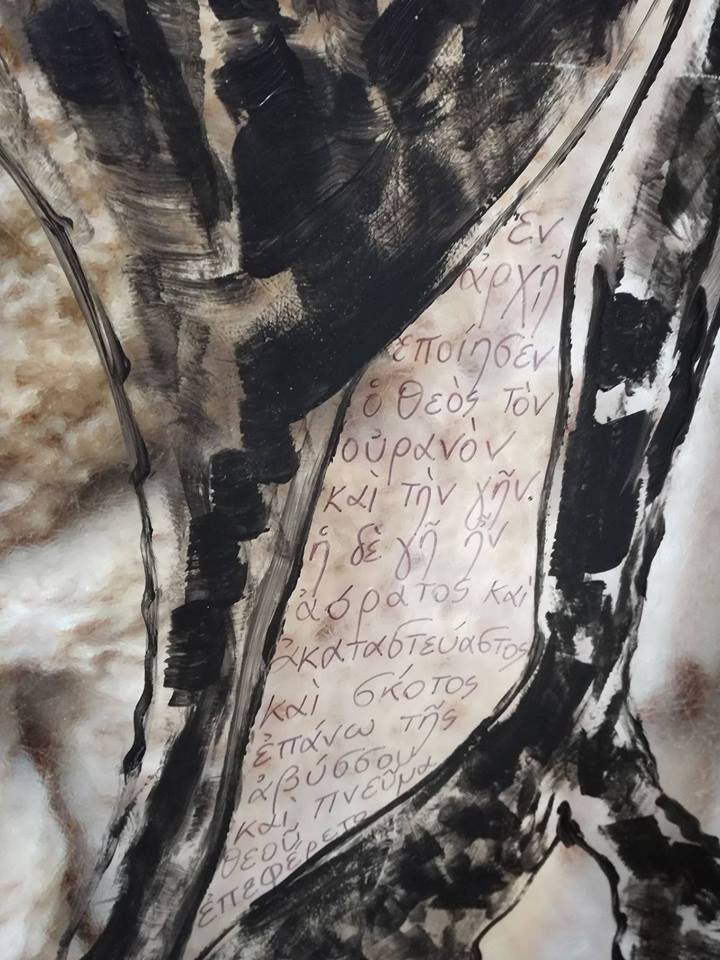 Ἐν
ἀρχῇ
ἐποίησεν
ὁ Θεὸς τὸν
οὐρανὸν
καὶ τὴν γῆν.
ἡ δὲ γῆ ἦν
ἀόρατος καὶ
ἀκατασϛεύαστος
καὶ σκότος
ἐπάνω τῆς
ἀβύσσου
καὶ πνεῦμα
θεοῦ
ἐπεφέρετο